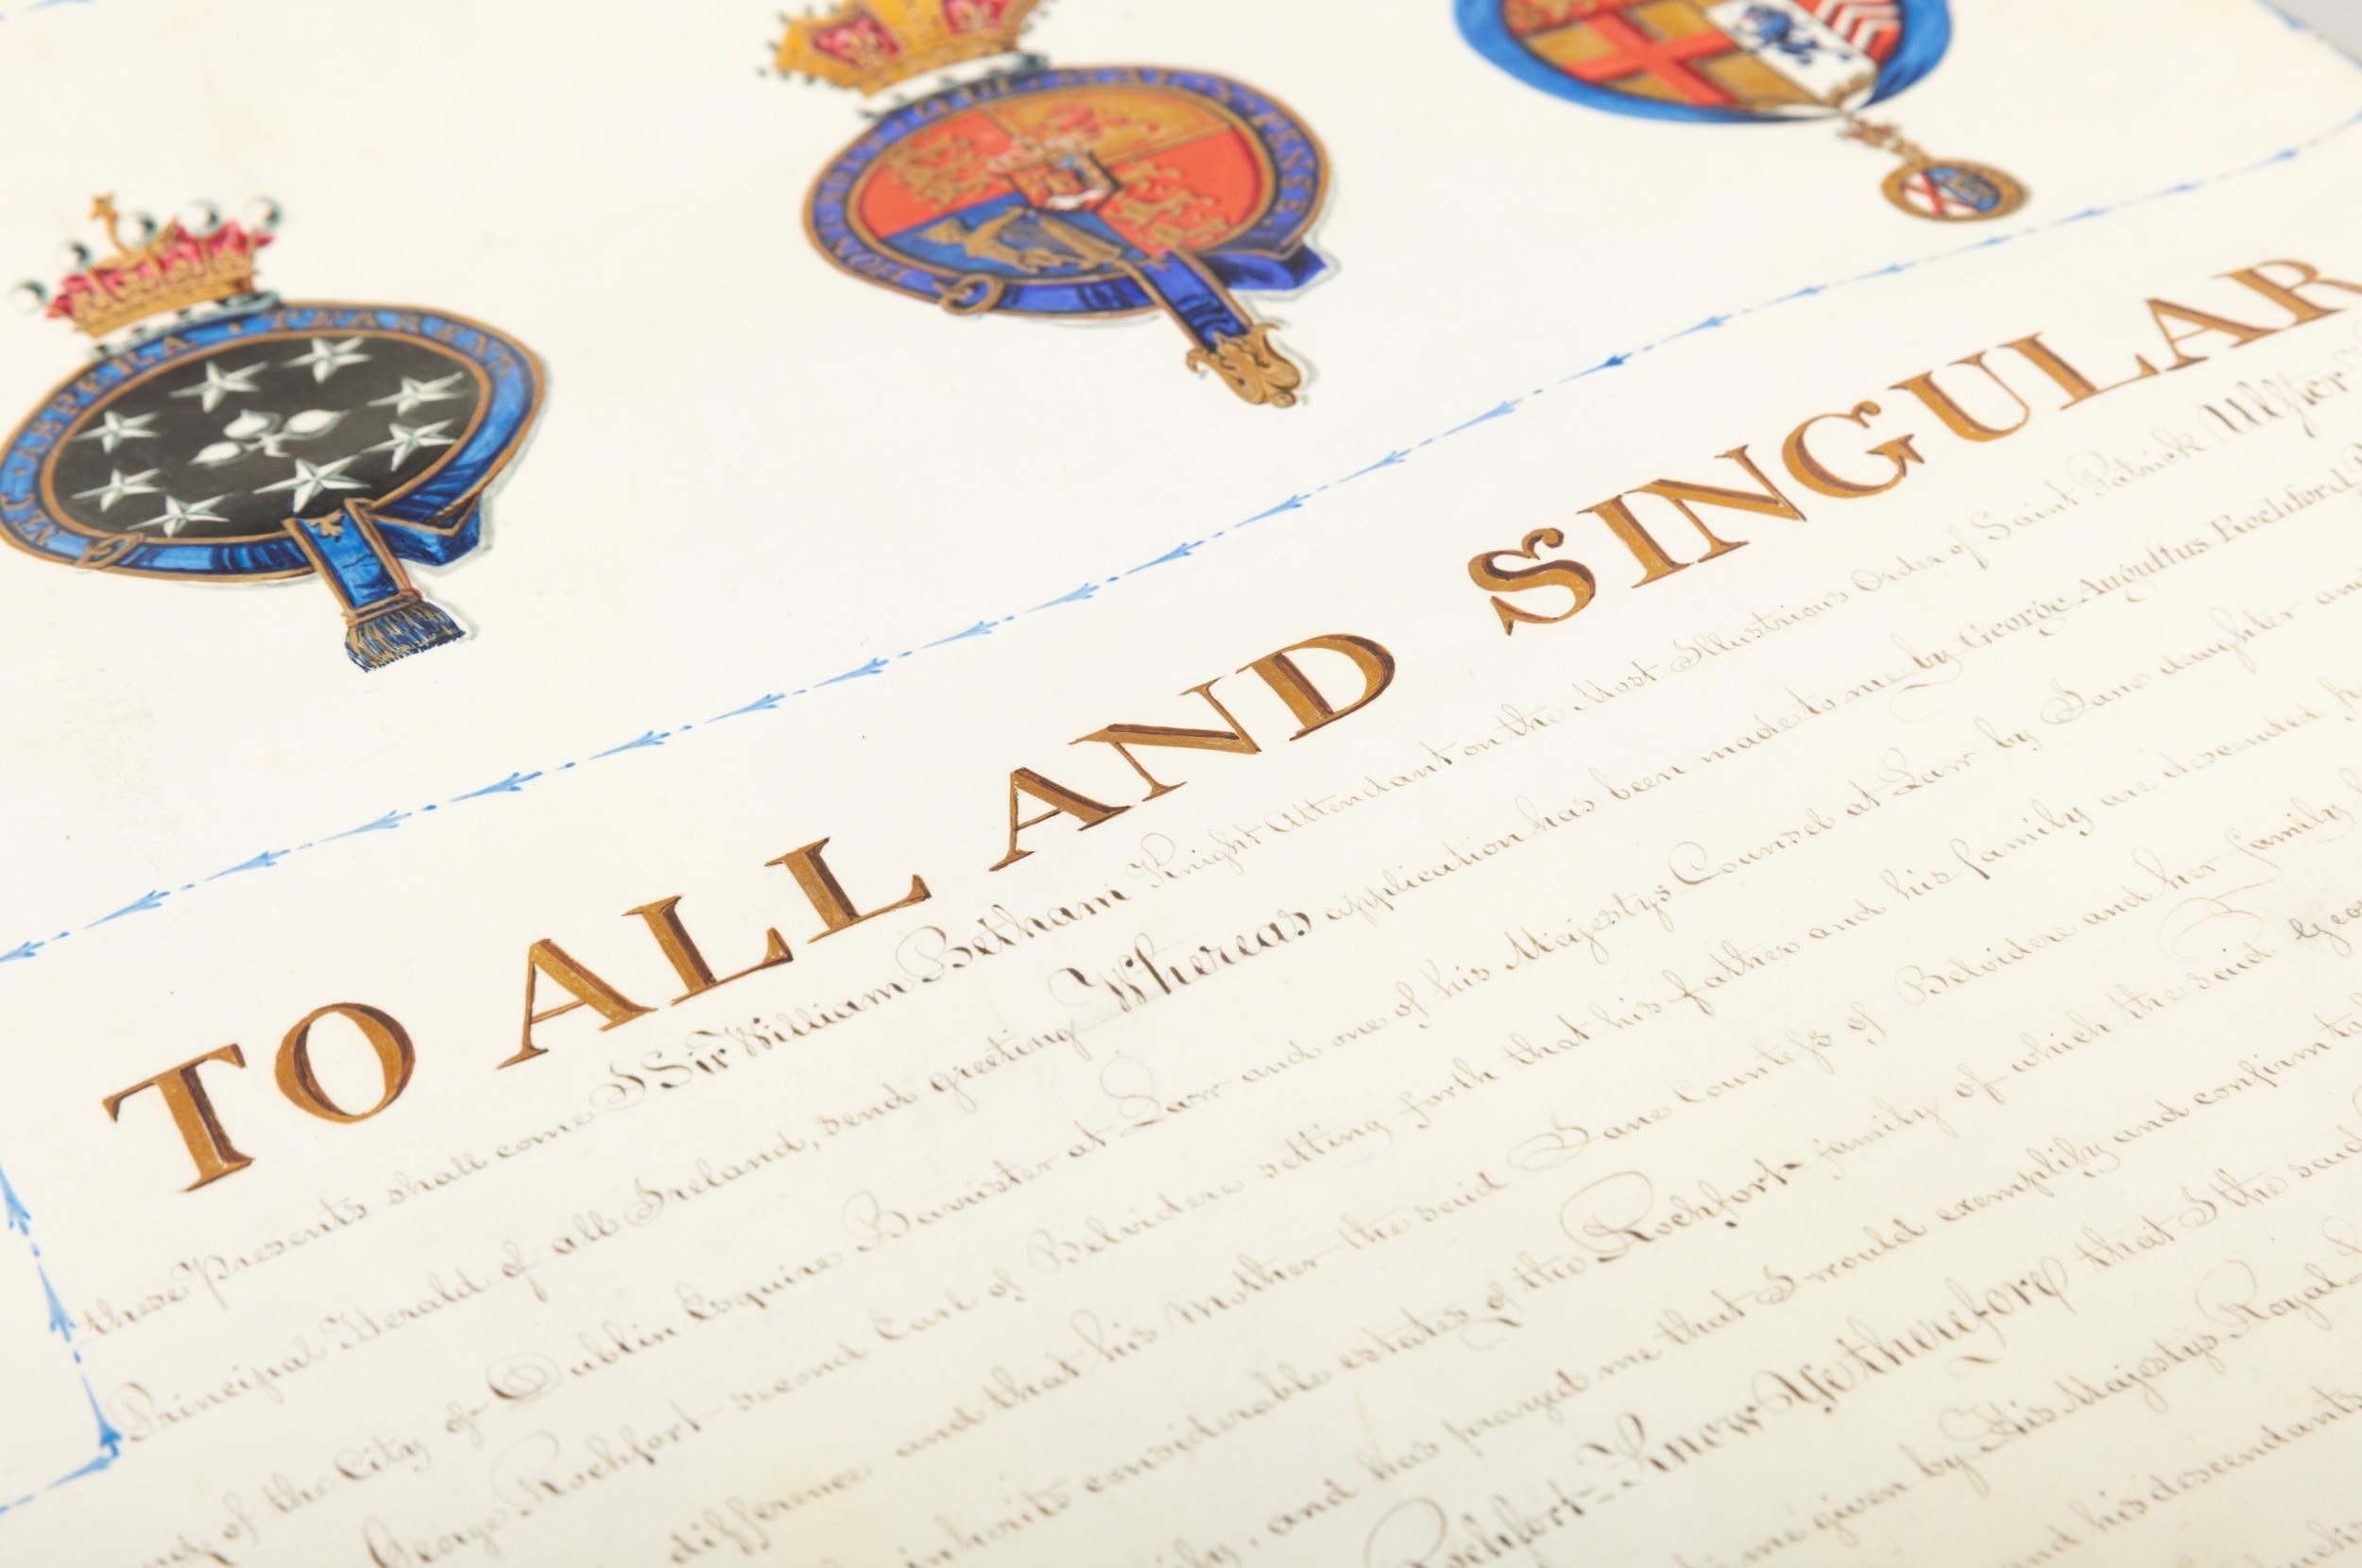 NEC · ASPERA · TERRENT
HONI · SOIT · QUI · MAL · Y · PENSE
TO ALL AND SINGULAR
these Presents shall come I Sir William Betham Knight Attendant on the Most Illustrious Order of Saint Patrick Ulster
Principal Herald of all Ireland, send greeting Whereas application has been made to me by George Augustus Rochford
of the City of Dublin Esquire Barrister at Law and one of his Majestys Counsel at Law by Jane daughter and
George Rochfort second Earl of Belvidere setting forth that his father and his family are descended
difference and that his Mother the said Jane Countess of Belvidere and her family
inherits considerable estates of the Rochfort family of which the said
and has prayed me that I would exemplify and confirm to
Rochfort - Know Ye therefore that I the said
me given by His Majestys Royal
and his descendants